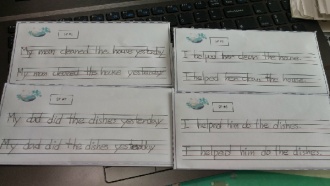 My mom cleaned the house yesterday.
My mom cleaned the house yesterday.
I helped her clean the house.
I helped her clean the house.
My dad did the dishes yesterday.
My dad did the dishes yesterday.
I helped him do the dishes.
I helped him do the dishes.